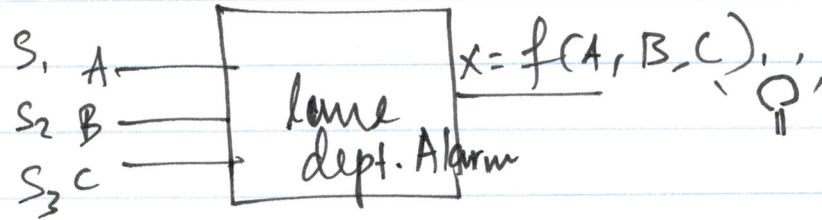 S₁ A
S₂ B
S₃ C
lane
dept. Alarm
X = f(A, B, C)